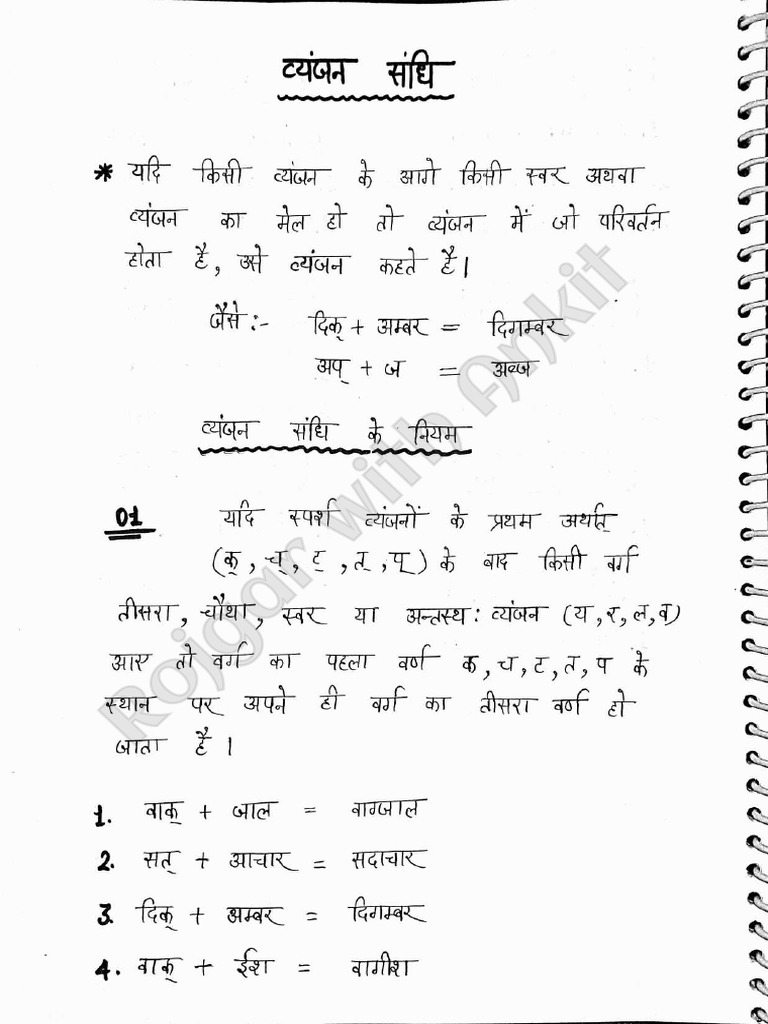 व्यंजन संधि
* यदि किसी व्यंजन के आगे किसी स्वर अथवा
व्यंजन का मेल हो तो व्यंजन में जो परिवर्तन
होता है, उसे व्यंजन कहते है।
जैसे:- दिक् + अम्बर = दिगम्बर
अप् + ज = अब्ज
व्यंजन संधि के नियम
01 यदि स्पर्श व्यंजनों के प्रथम अर्थात्
(क्, च्, ट्, त्, प्) के बाद किसी वर्ग
तीसरा, चौथा, स्वर या अन्तस्थ: व्यंजन (य, र, ल, व)
आए तो वर्ग का पहला वर्ण क, च, ट, त, प के
स्थान पर अपने ही वर्ग का तीसरा वर्ण हो
जाता है।
1. वाक् + जाल = वाग्जाल
2. सत् + आचार = सदाचार
3. दिक् + अम्बर = दिगम्बर
4. वाक् + ईश = वागीश
Rojgar with Ankit